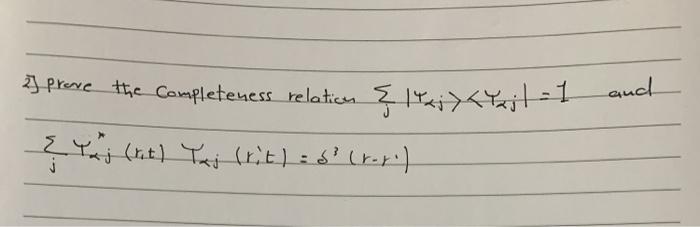 2] prove the Completeness relation Σ_j |Ψ_αj><Ψ_αj| = 1 and
Σ_j Ψ*_αj (r,t) Ψ_αj (r',t) = δ³ (r-r')